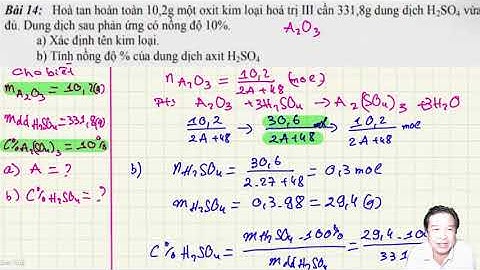 Bài 14: Hoà tan hoàn toàn 10,2g một oxit kim loại hoá trị III cần 331,8g dung dịch H₂SO₄ vừa
đủ. Dung dịch sau phản ứng có nồng độ 10%.
A₂O₃
a) Xác định tên kim loại.
b) Tính nồng độ % của dung dịch axit H₂SO₄
Cho biết
m A₂O₃ = 10,2(g)
mdd H₂SO₄ = 331,8(g)
C% A₂(SO₄)₃ = 10%
a) A = ?
b) C% H₂SO₄ = ?
n A₂O₃ = 10,2 / 2A + 48 (mol)
pt: A₂O₃ + 3H₂SO₄ → A₂(SO₄)₃ + 3H₂O
10,2 / 2A+48 → 30,6 / 2A+48 → 10,2 / 2A+48 mol
b) n H₂SO₄ = 30,6 / 2.27+48 = 0,3 mol
m H₂SO₄ = 0,3.98 = 29,4 (g)
C% H₂SO₄ = m H₂SO₄ . 100% / mdd H₂SO₄ = 29,4 . 100 / 331